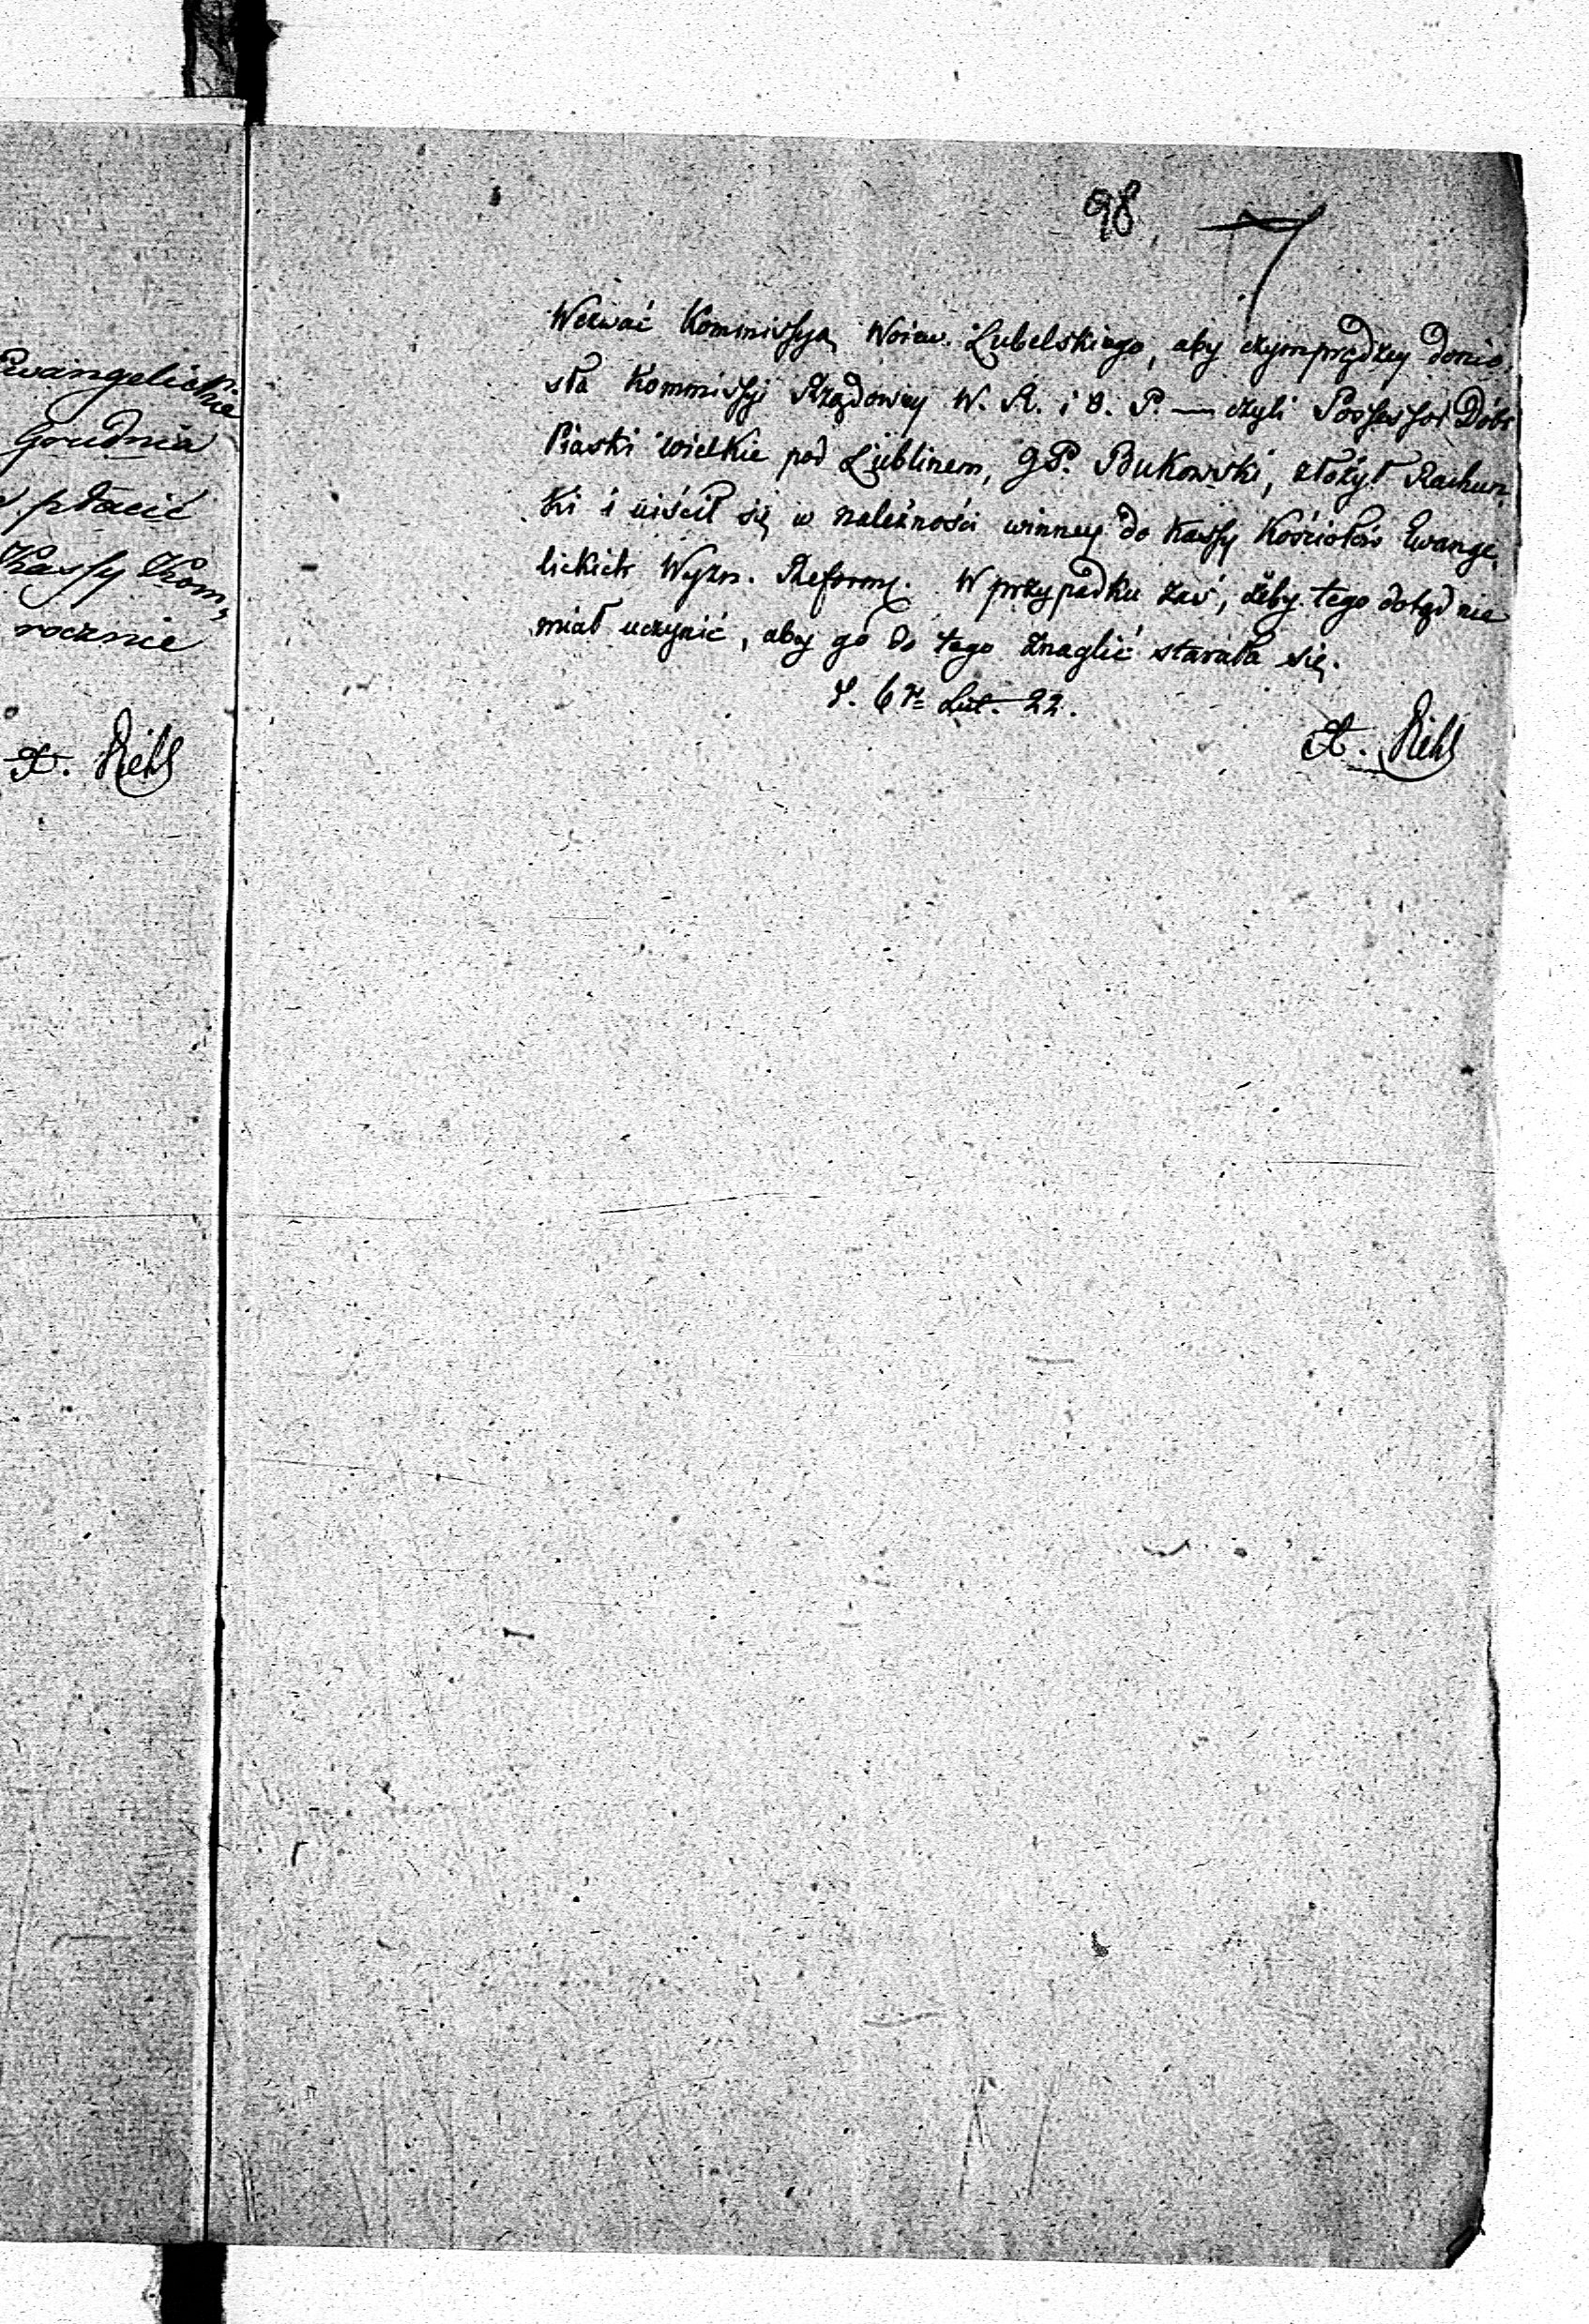 Ewangelickie
Grudnia
płacić
Kassy Kom,
rocznie
A. Diehl
98.
7
Wezwać Kommissyą Woiew. Lubelskiego, aby czymprędzey donio,
sła Kommissyi Rządowey W. R. i O. P. — czyli Possessor Dóbr
Piaski wielkie pod Lublinem, JP. Bukowski, złożył Rachun,
ki i uiścił się w należności winney do Kassy Kościołów Ewange,
lickich Wyzn. Reform. W przypadku zaś, żeby tego dotąd nie
miał uczynić, aby go do tego znaglić starała się.
d. 6 Lut. 22.
A. Diehl